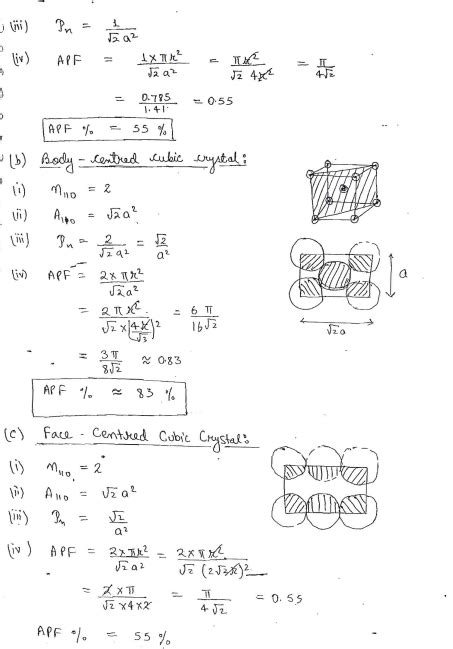 (iii) Pn = 1/√2 a²
(iv) APF = 1×πr²/√2 a² = πr²/√2 4r² = π/4√2
= 0.785/1.41 = 0.55
APF % = 55 %
(b) Body - centred cubic crystal:
(i) n110 = 2
(ii) A110 = √2 a²
(iii) Pn = 2/√2 a² = √2/a²
(iv) APF = 2×πr²/√2 a²
a
= 2πr²/√2 × (4r/√3)² = 6π/16√2
√2 a
= 3π/8√2 ≈ 0.83
APF % ≈ 83 %
(c) Face - Centred Cubic Crystal:
(i) n110 = 2
(ii) A110 = √2 a²
(iii) Pn = √2/a²
(iv) APF = 2×πr²/√2 a² = 2×πr²/√2 (2√2r)²
= 2×π/√2×4×2 = π/4√2 = 0.55
APF % = 55 %